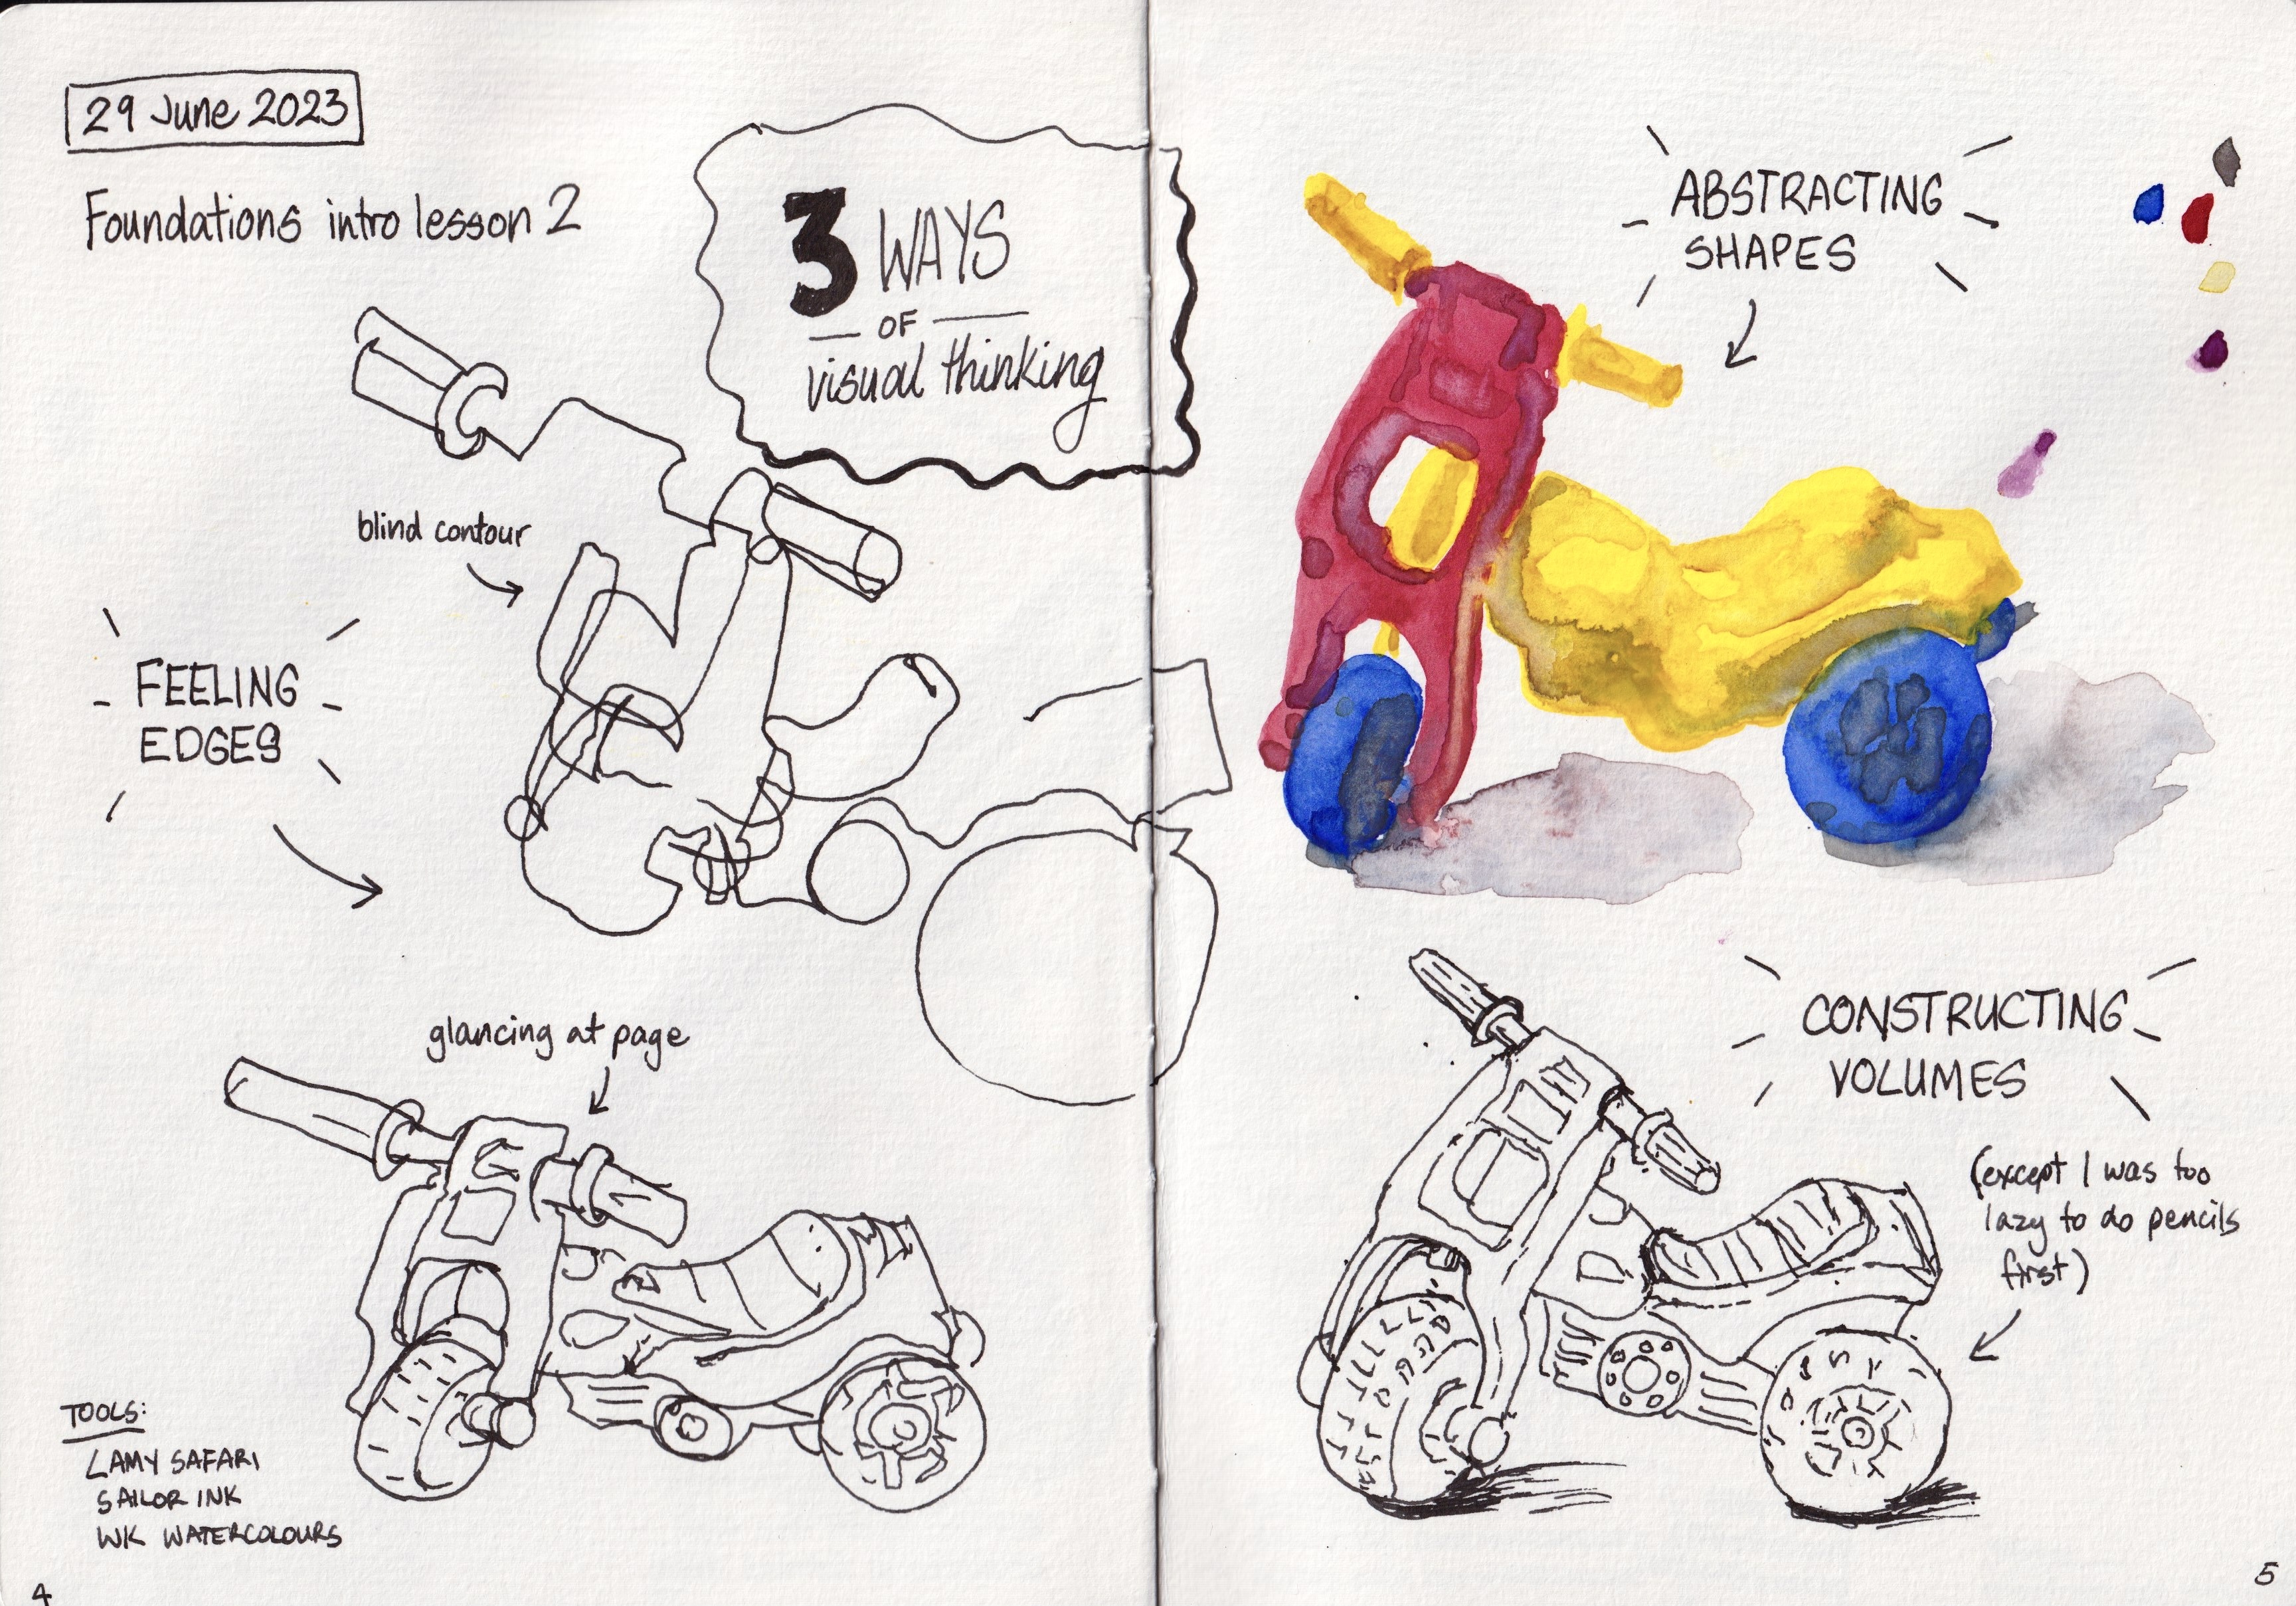 29 June 2023
Foundations intro lesson 2
3 WAYS
OF
visual thinking
blind contour
FEELING
EDGES
glancing at page
TOOLS:
LAMY SAFARI
SAILOR INK
WK WATERCOLOURS
4
ABSTRACTING
SHAPES
CONSTRUCTING
VOLUMES
(except I was too
lazy to do pencils
first)
5